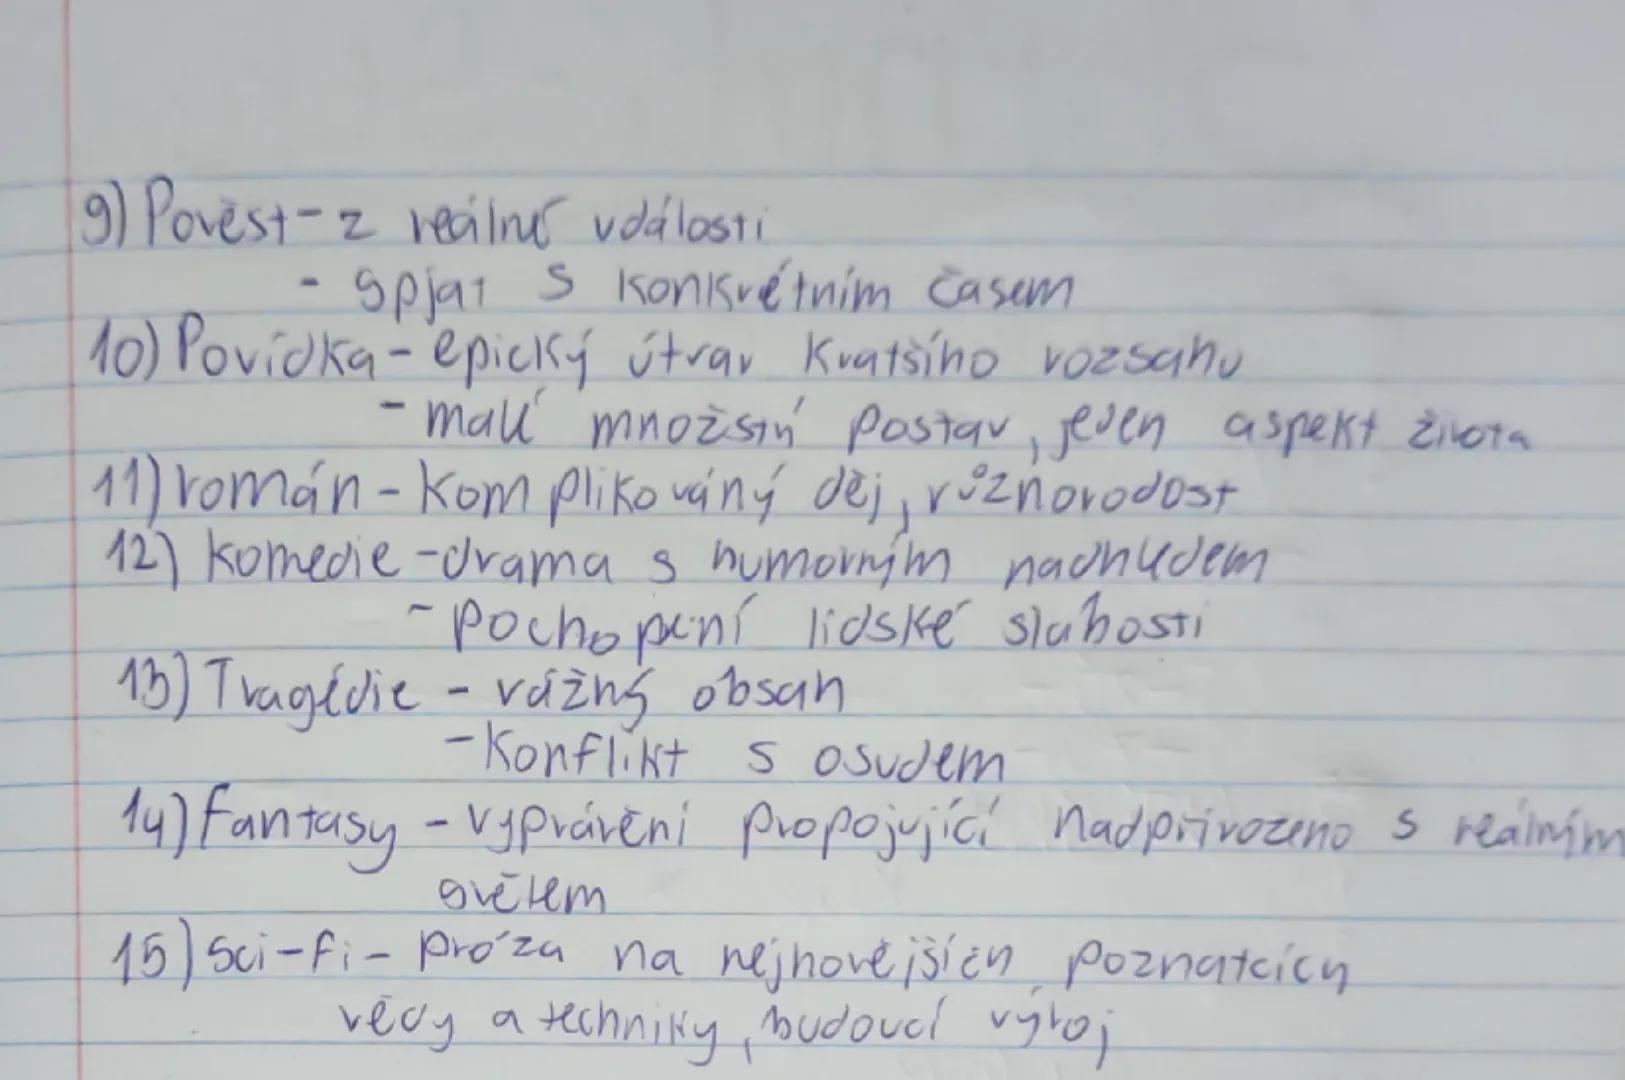 9) Pověst - z reálné událostí
- spjat s konkrétním časem
10) Povídka - epický útvar kratšího rozsahu
- malé množství postav, jeden aspekt života
11) román - komplikovaný děj, různorodost
12) komedie - drama s humorným nadhledem
- pochopení lidské slabosti
13) Tragédie - vážný obsah
- Konflikt s osudem
14) Fantasy - vyprávění propojující nadpřirozeno s reálním
světem
15) Sci-fi - próza na nejnovějších poznatcích
vědy a techniky, budoucí vývoj